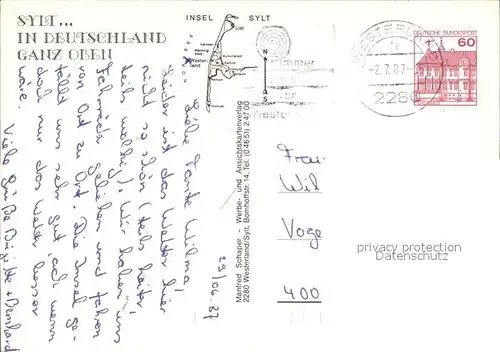 SYLT...
IN DEUTSCHLAND
GANZ OBEN
INSEL SYLT
List
Westerland
N
S
DEUTSCHE BUNDESPOST
60
WESTERLAND
-2.7.87
2280
immer
Wester
29/06.87
Liebe Tante Wilma,
leider ist das Wetter hier
nicht so schön (teils heiter,
teils wolkig). Wir haben uns
Fahrräder geliehen und fahren
von Ort zu Ort. Die Insel ge-
fällt uns sehr gut, ach wenn
doch nur das Wetter besser
wäre.
Viele Grüße Brigitte + Bernhard
Manfred Schaper - Werbe- und Ansichtskartenverlag
2280 Westerland/Sylt, Bomhoffstr. 14, Tel. (0 46 51) 2 47 00
Frau
Wil
Voge
400
privacy protection
Datenschutz